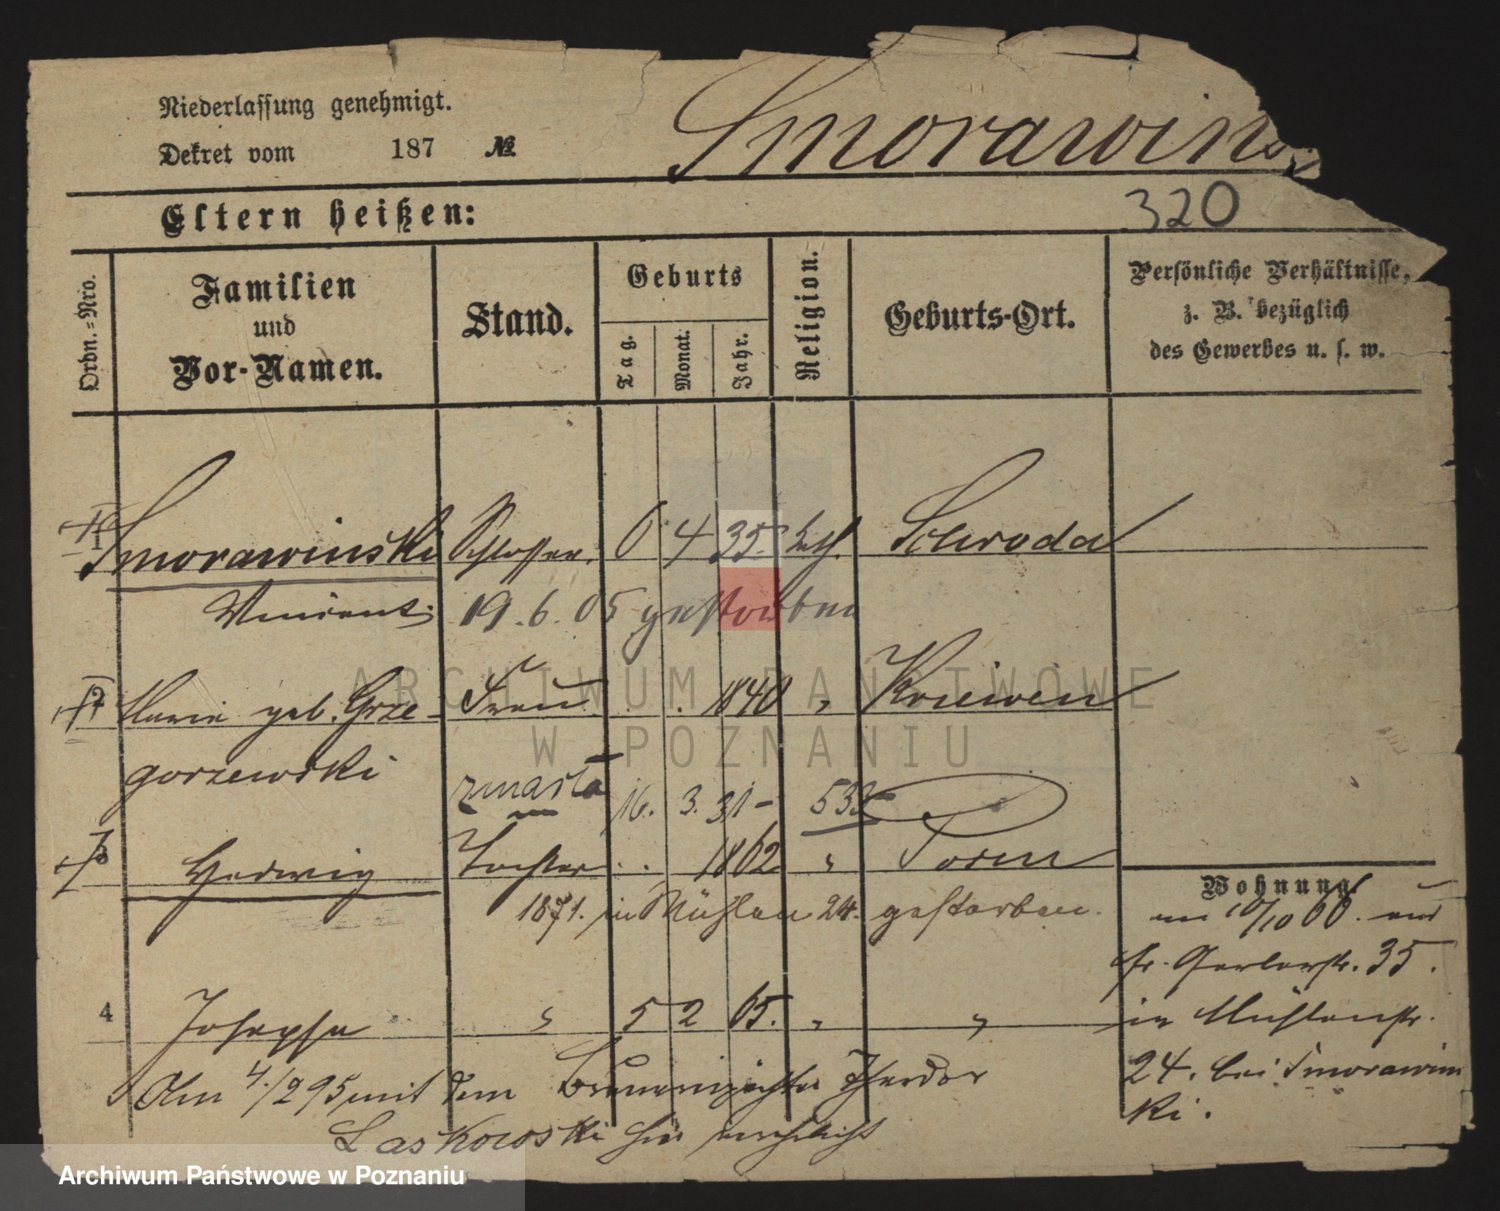 Niederlassung genehmigt.
Dekret vom 187 №
Smorawins
320
Eltern heißen:
Ordn.-Nro.
Familien und Vor-Namen.
Stand.
Geburts
Tag.
Monat.
Jahr.
Religion.
Geburts-Ort.
Persönliche Verhältnisse, z. B. bezüglich des Gewerbes u. s. w.
1 Smorawinski Schlosser. 6 4 35. kath. Schroda
Vincent. 19.6.05 gestorben
2 Maria geb. Grze- Frau 1840 " Kriewen
gorzewski
zmarła 16. 3. 31 - 533
3 Hedwig Tochter 1862 " Posen
1871. in Mühlen 24. gestorben.
4 Josepha " 5 2 65. " "
Am 4./2 95 mit dem Theodor
Laskowski hier verehelicht
Wohnung
am 10/10 66. aus
Gr. Gerberstr. 35.
in Mühlenstr.
24. bei Smorawins
ki.
ARCHIWUM PAŃSTWOWE
W POZNANIU
Archiwum Państwowe w Poznaniu